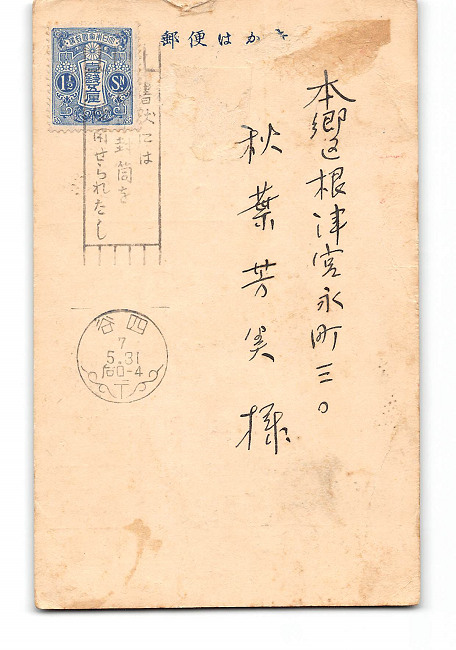 郵便はかき
本郷区根津宮永町三〇
秋葉芳美様
大日本帝国郵便
壹銭五厘
1½ Sn
書状には
封筒を
用せられたし
四谷
7
5.31
后0-4